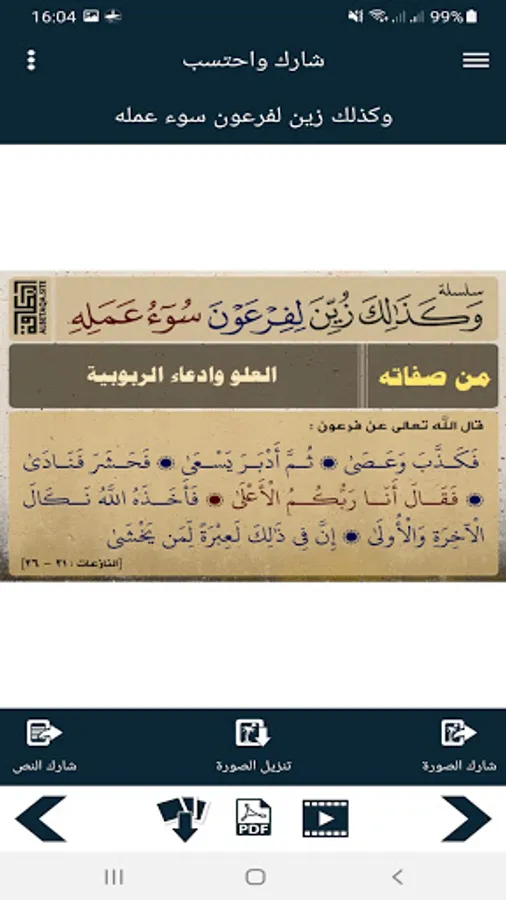 16:04 99%
شارك واحتسب
وكذلك زين لفرعون سوء عمله
سلسلة
وَكَذَٰلِكَ زُيِّنَ لِفِرْعَوْنَ سُوٓءُ عَمَلِهِ
البطاقة
ALBETAQA.SITE
من صفاته
العلو وادعاء الربوبية
قال الله تعالى عن فرعون :
فَكَذَّبَ وَعَصَىٰ ۞ ثُمَّ أَدْبَرَ يَسْعَىٰ ۞ فَحَشَرَ فَنَادَىٰ
۞ فَقَالَ أَنَا رَبُّكُمُ الْأَعْلَىٰ ۞ فَأَخَذَهُ اللَّهُ نَكَالَ
الْآخِرَةِ وَالْأُولَىٰ ۞ إِنَّ فِي ذَٰلِكَ لَعِبْرَةً لِّمَن يَخْشَىٰ
[النازعات : ٢١ - ٢٦]
شارك الصورة
تنزيل الصورة
شارك النص
PDF